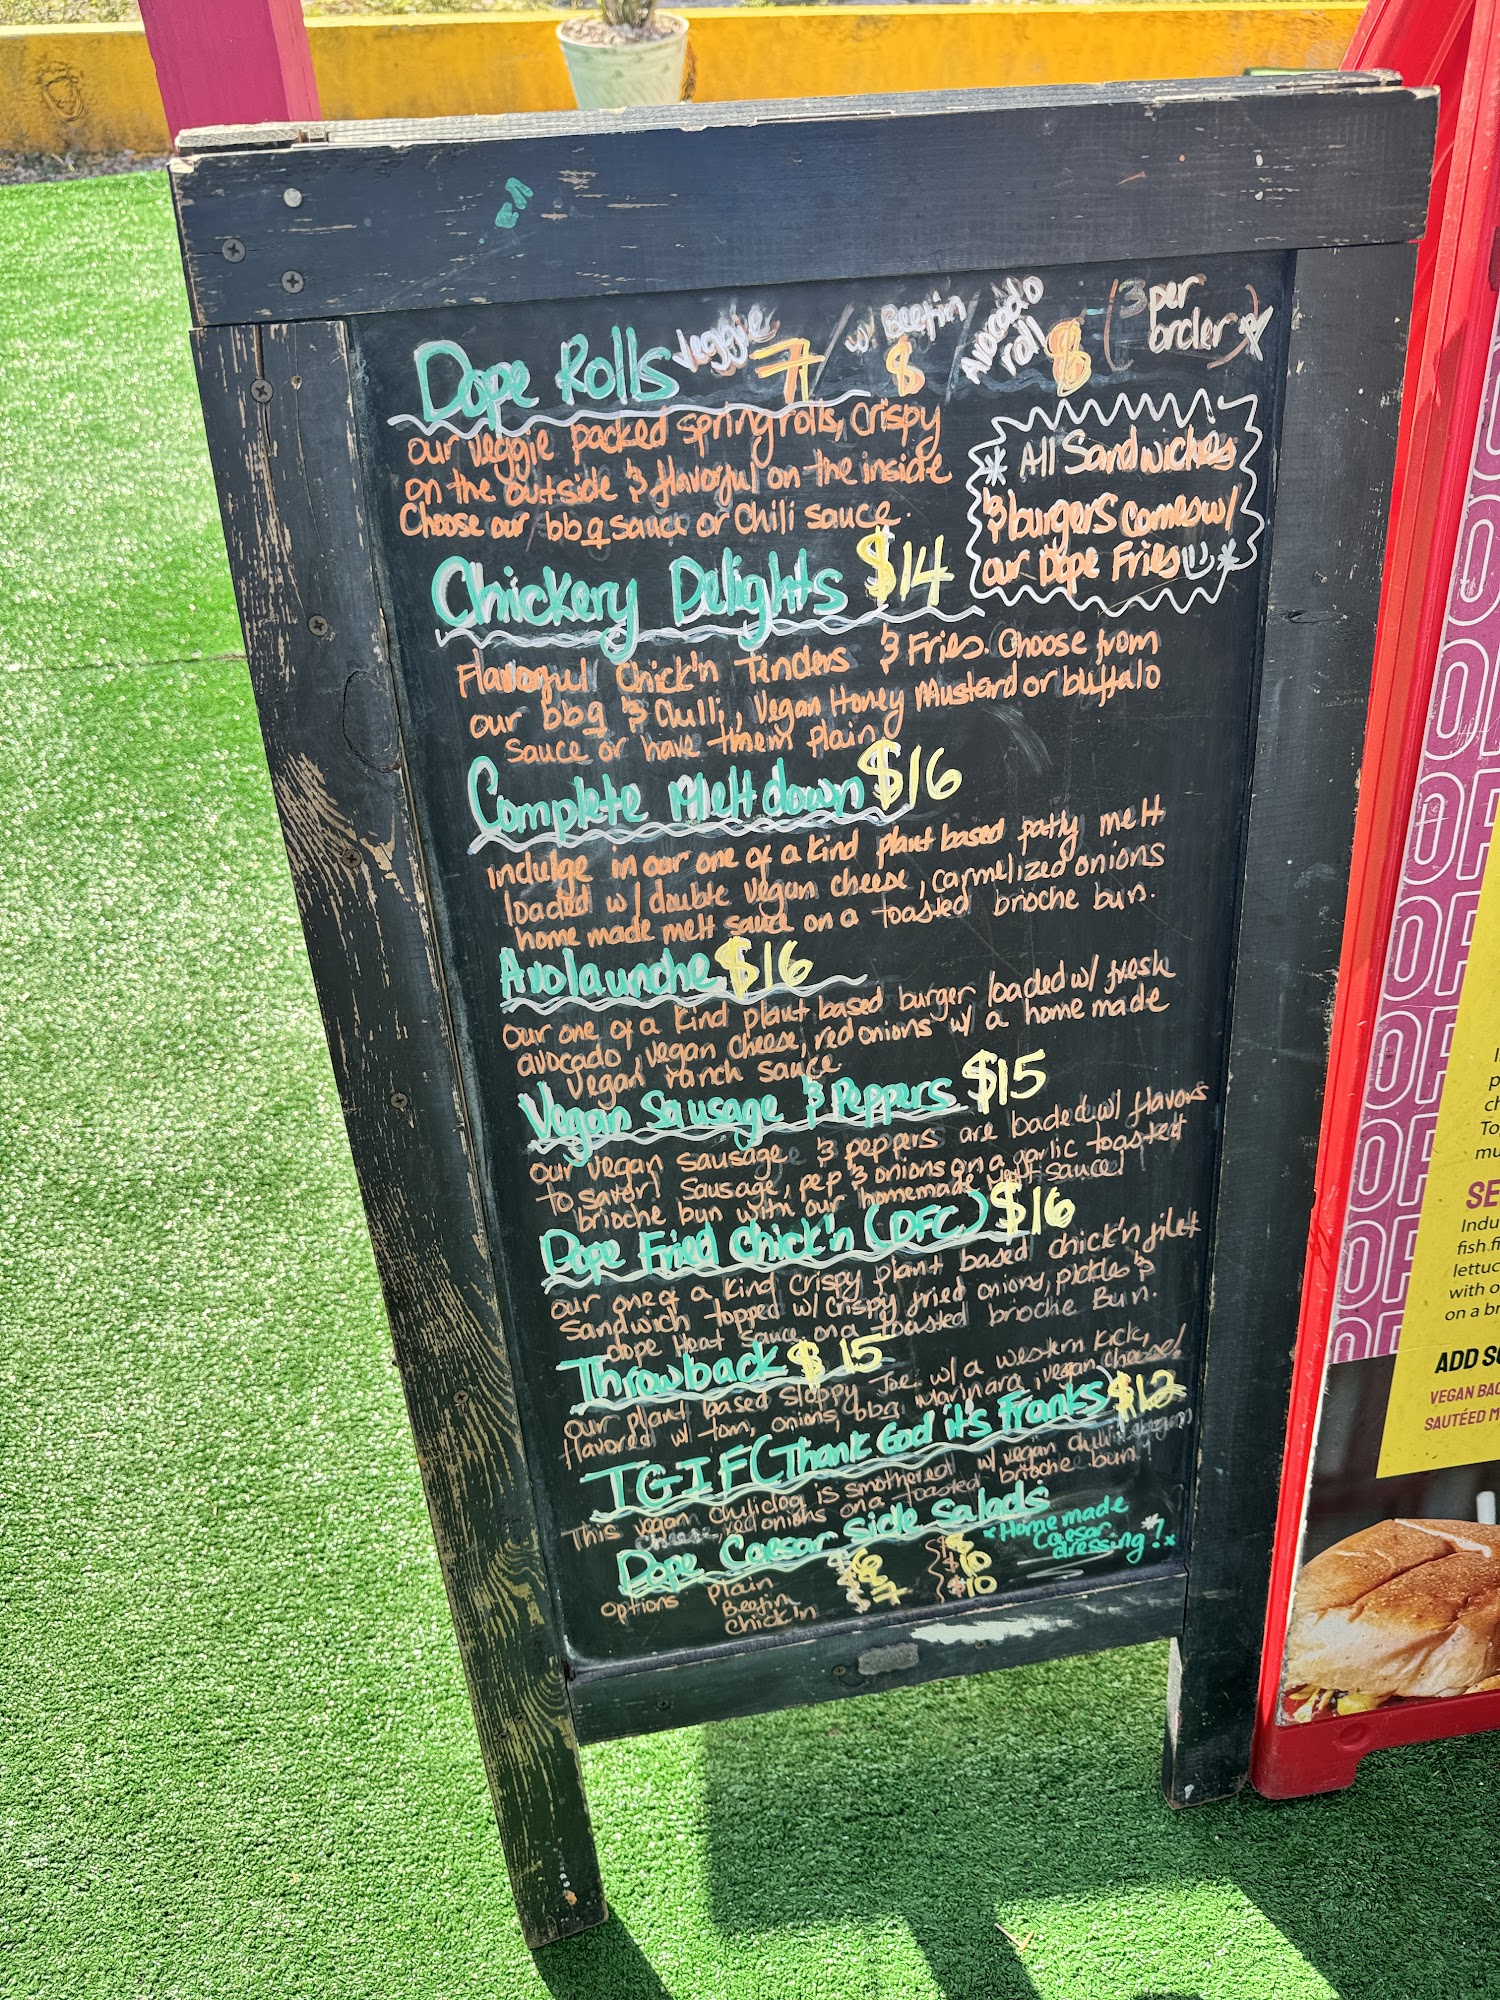 Dope Rolls Veggie 7 / w/ Beefin $ / Avocado roll $ (3 per order)
our veggie packed springrolls, Crispy
on the outside & flavorful on the inside
Choose our bbq sauce or Chili sauce.
* All Sandwiches
& burgers comes w/
our Dope Fries *
Chickery Delights $14
Flavorful Chick'n Tinders & Fries. Choose from
our bbq & Chilli, Vegan Honey Mustard or buffalo
Sauce or have them plain
Complete Meltdown $16
indulge in our one of a kind plant based patty melt
loaded w/ double vegan cheese, carmelized onions
home made melt sauce on a toasted brioche bun.
Avolaunche $16
our one of a kind plant based burger loaded w/ fresh
avocado, vegan cheese, red onions w/ a home made
Vegan ranch sauce
Vegan Sausage & Peppers $15
our vegan sausage & peppers are loaded w/ flavors
to savor! Sausage, pep & onions on a garlic toasted
brioche bun with our homemade melt sauce!
Dope Fried Chick'n (DFC) $16
our one of a kind crispy plant based chick'n filet
Sandwich topped w/ crispy fried onions, pickles &
dope Heat sauce on a toasted brioche Bun.
Throwback $15
our plant based sloppy Joe w/ a western kick,
flavored w/ tom, onions, bbq, Marinara, vegan cheese!
TGIF (Thank God it's Franks) $13
This vegan chilidog is smothered w/ vegan chilli vegan
cheese, red onions on a toasted brioche bun!
Dope Caesar Side Salads
*Home made
Caesar
dressing!*
options plain $6 $8
Beefin $10
Chick'n 7 $10
SE
Indu
fish fi
lettuc
with o
on a br
ADD S
VEGAN BAC
SAUTÉED M